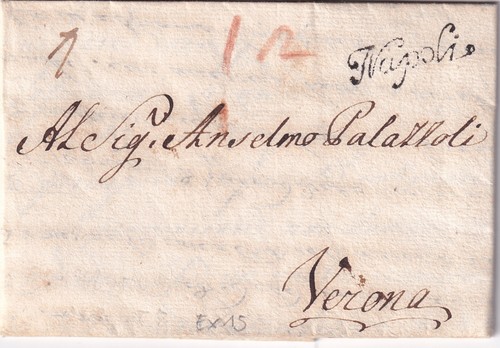 12 Napoli
Al Sigr. Anselmo Palazzoli
Verona
EX 15